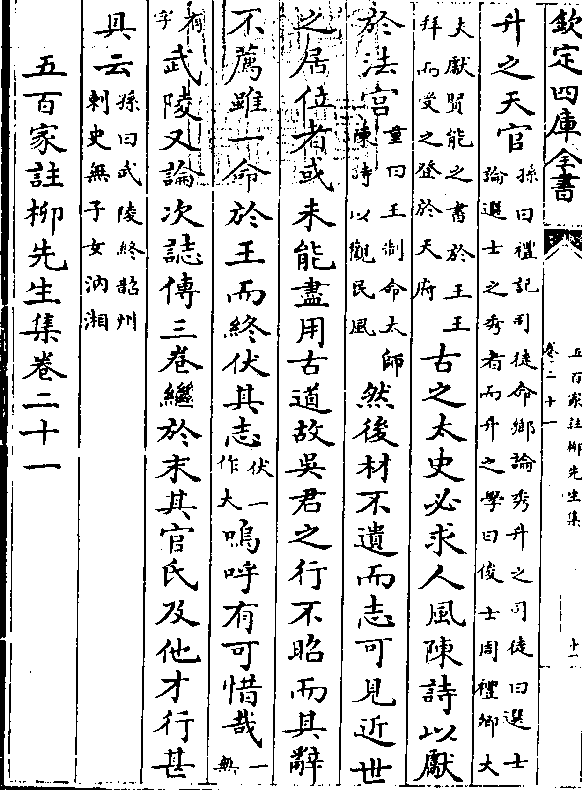 欽定四庫全書
五百家註柳先生集
卷二十一
十一
升之天官孫曰禮記司徒命鄉論秀升之司徒曰選士論選士之秀者而升之學曰俊士周禮鄉大
夫獻賢能之書於王王拜而受之登於天府古之太史必求人風陳詩以獻
於法宫童曰王制命太師陳詩以觀民風然後材不遺而志可見近世
之居位者或未能盡用古道故吳君之行不昭而其辭
不薦雖一命於王而終伏其志伏一作大嗚呼有可惜哉一無
有字武陵又論次誌傳三卷繼於末其官氏及他才行甚
具云孫曰武陵終韶州刺史無子女汭湘
五百家註柳先生集卷二十一